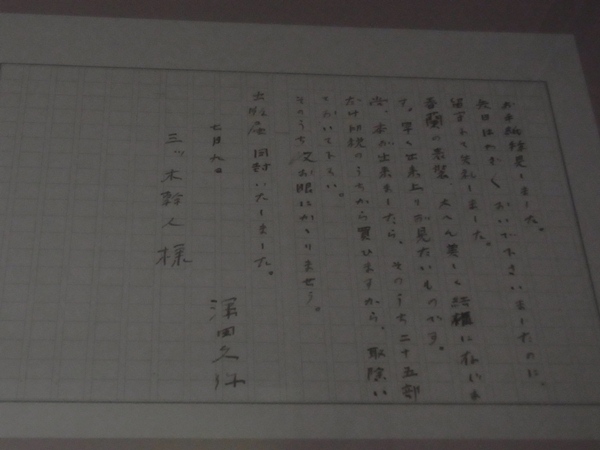 お手紙拝見しました。
先日はわざわざおいで下さいましたのに、
留守にて失礼しました。
香蘭の表装、大へん美しく結構に存じま
す。早く出来上りが見たいものです。
尚、本が出来ましたら、そのうち二十五部
だけ印税のうちから買ひますから、取除い
ておいて下さい。
そのうち又お眼にかゝりませう。
出版届同封いたしました。
七月九日
深田久弥
三ツ木幹人様